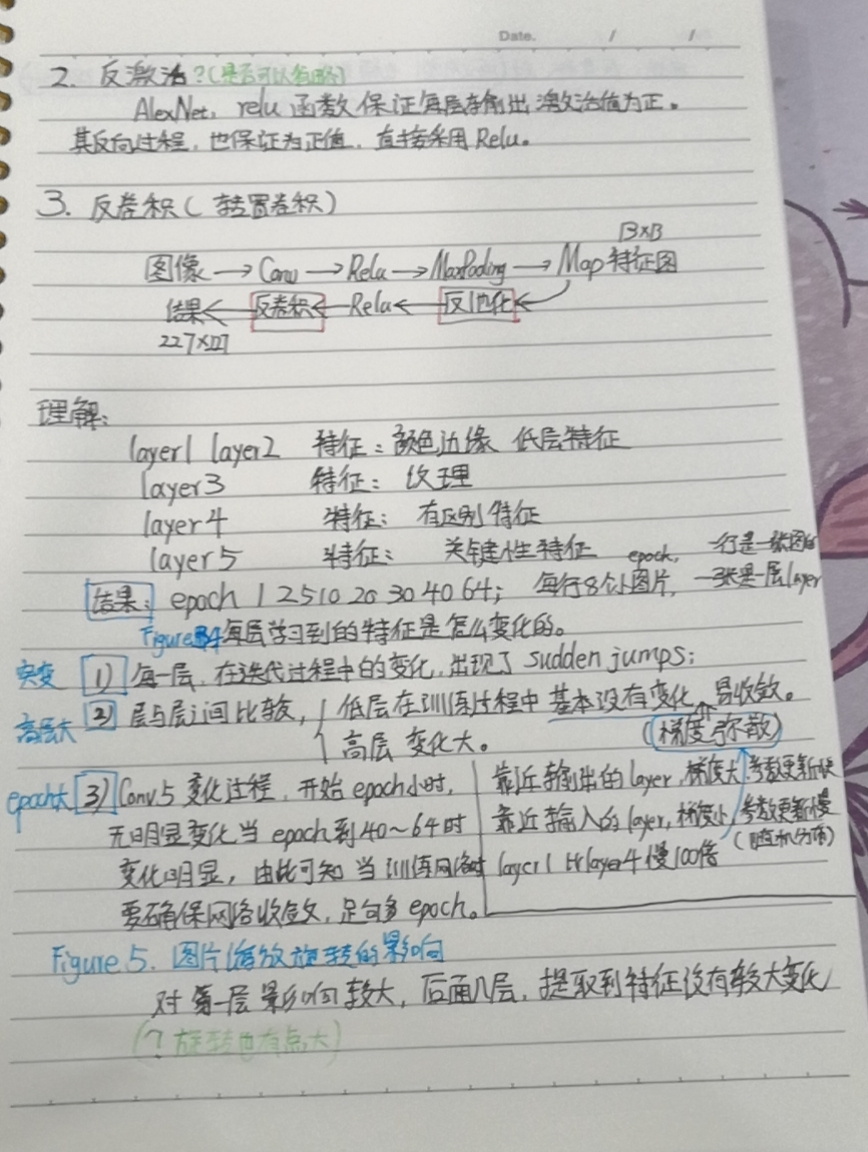 Date. / /
2. 反激活？(是否可以省略)
AlexNet，relu 函数保证每层输出激活值为正。
其反向过程，也保证为正值，直接采用Relu。
3. 反卷积（转置卷积）
13×13
图像→Conv→Relu→MaxPooling→Map特征图
结果←反卷积←Relu←反池化←
227×227
理解：
layer1 layer2 特征：颜色边缘 低层特征
layer3 特征：纹理
layer4 特征：有区别特征
layer5 特征：关键性特征
epoch, 一行是一张图的
结果：epoch 1 2 5 10 20 30 40 64； 每行8个小图片，一张是一层layer
Figure 4 每层学习到的特征是怎么变化的。
突变 1) 每一层，在迭代过程中的变化，出现了 sudden jumps；
高层大 2) 层与层之间比较， 低层在训练过程中基本没有变化，易收敛。
高层 变化大。 (梯度弥散)
epoch大 3) Conv5 变化过程，开始epoch小时，
无明显变化当epoch到40～64时
变化明显，由此可知 当训练网络时
要确保网络收敛，足够多epoch。
靠近输出的layer，梯度大，参数更新快
靠近输入的layer，梯度小，参数更新慢
layer1 比layer4慢100倍
Figure 5. 图片缩放旋转的影响
对第一层影响较大，后面几层，提取到特征没有较大变化
(？旋转也有点大)